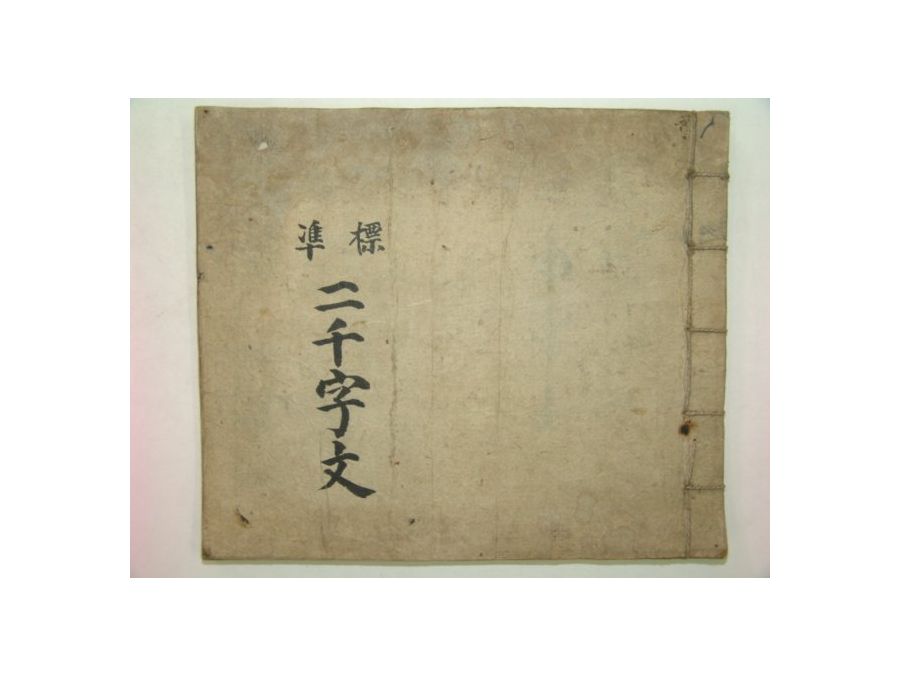 標準
二千字文